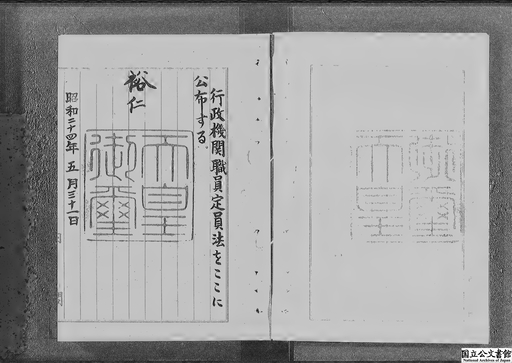 行政機関職員定員法をここに
公布する
裕仁
天皇
御璽
昭和二十四年五月三十一日
国立公文書館
National Archives of Japan